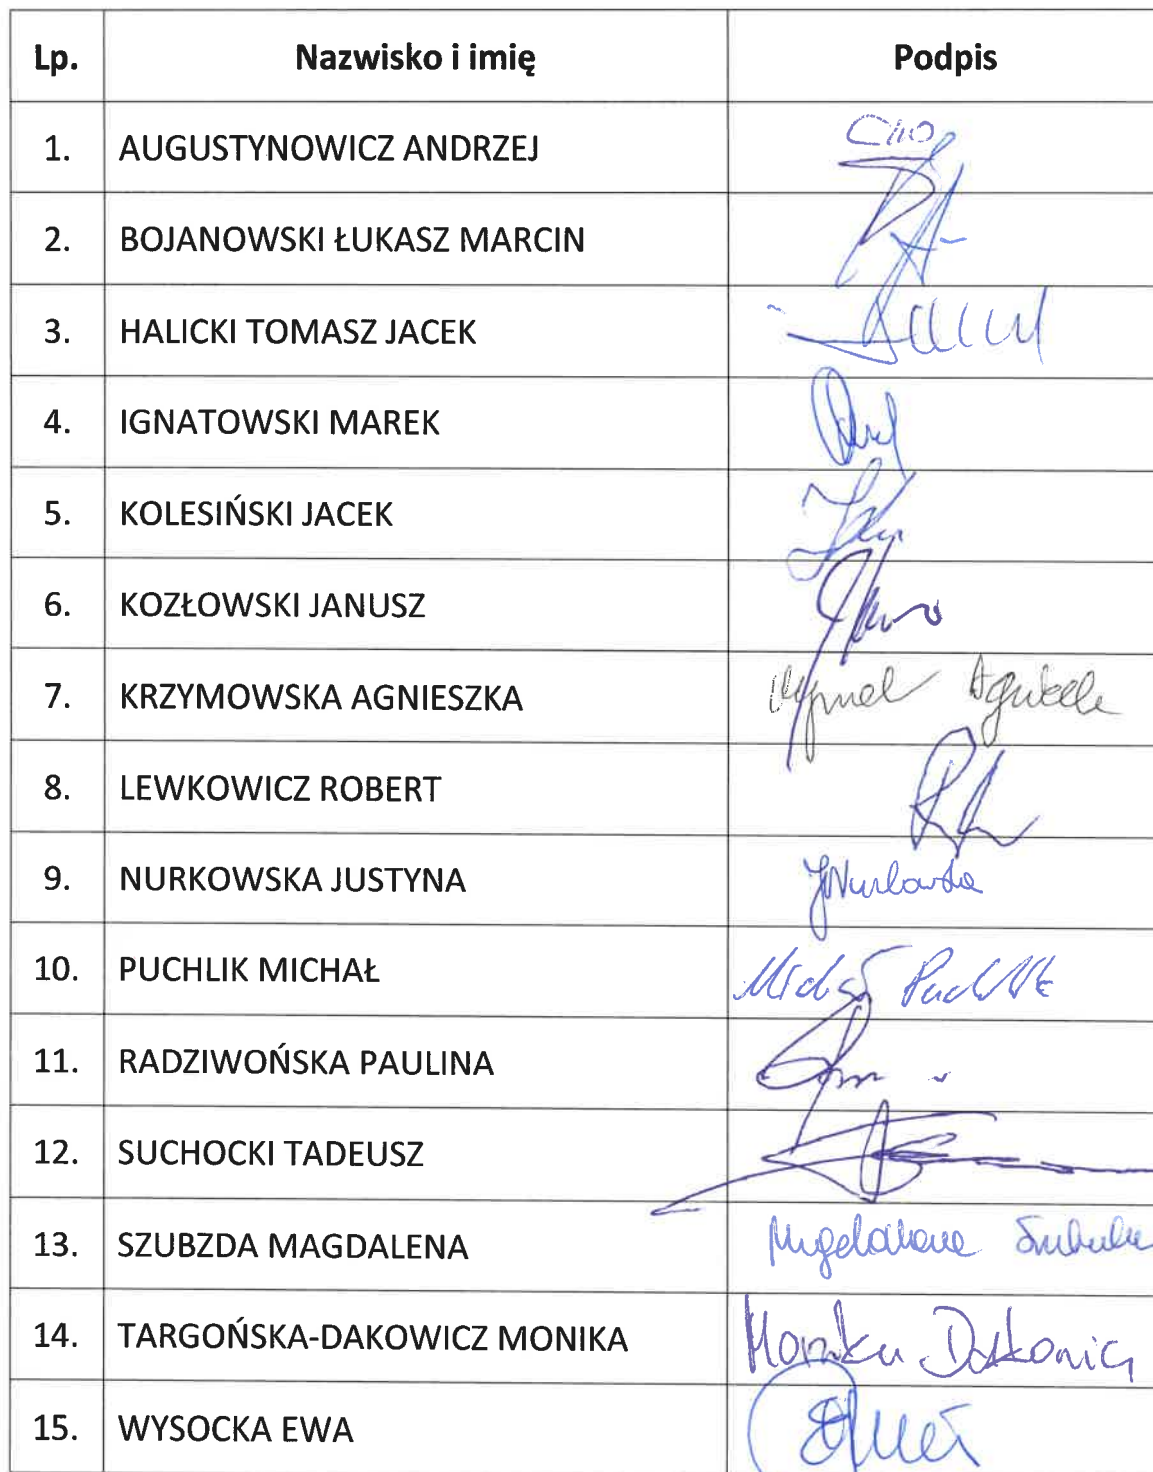 Lp. Nazwisko i imię Podpis
1. AUGUSTYNOWICZ ANDRZEJ
2. BOJANOWSKI ŁUKASZ MARCIN
3. HALICKI TOMASZ JACEK
4. IGNATOWSKI MAREK
5. KOLESIŃSKI JACEK
6. KOZŁOWSKI JANUSZ
7. KRZYMOWSKA AGNIESZKA
8. LEWKOWICZ ROBERT
9. NURKOWSKA JUSTYNA JNurkowska
10. PUCHLIK MICHAŁ Michał Puchlik
11. RADZIWOŃSKA PAULINA
12. SUCHOCKI TADEUSZ
13. SZUBZDA MAGDALENA Magdalena
14. TARGOŃSKA-DAKOWICZ MONIKA Monika Dakowicz
15. WYSOCKA EWA